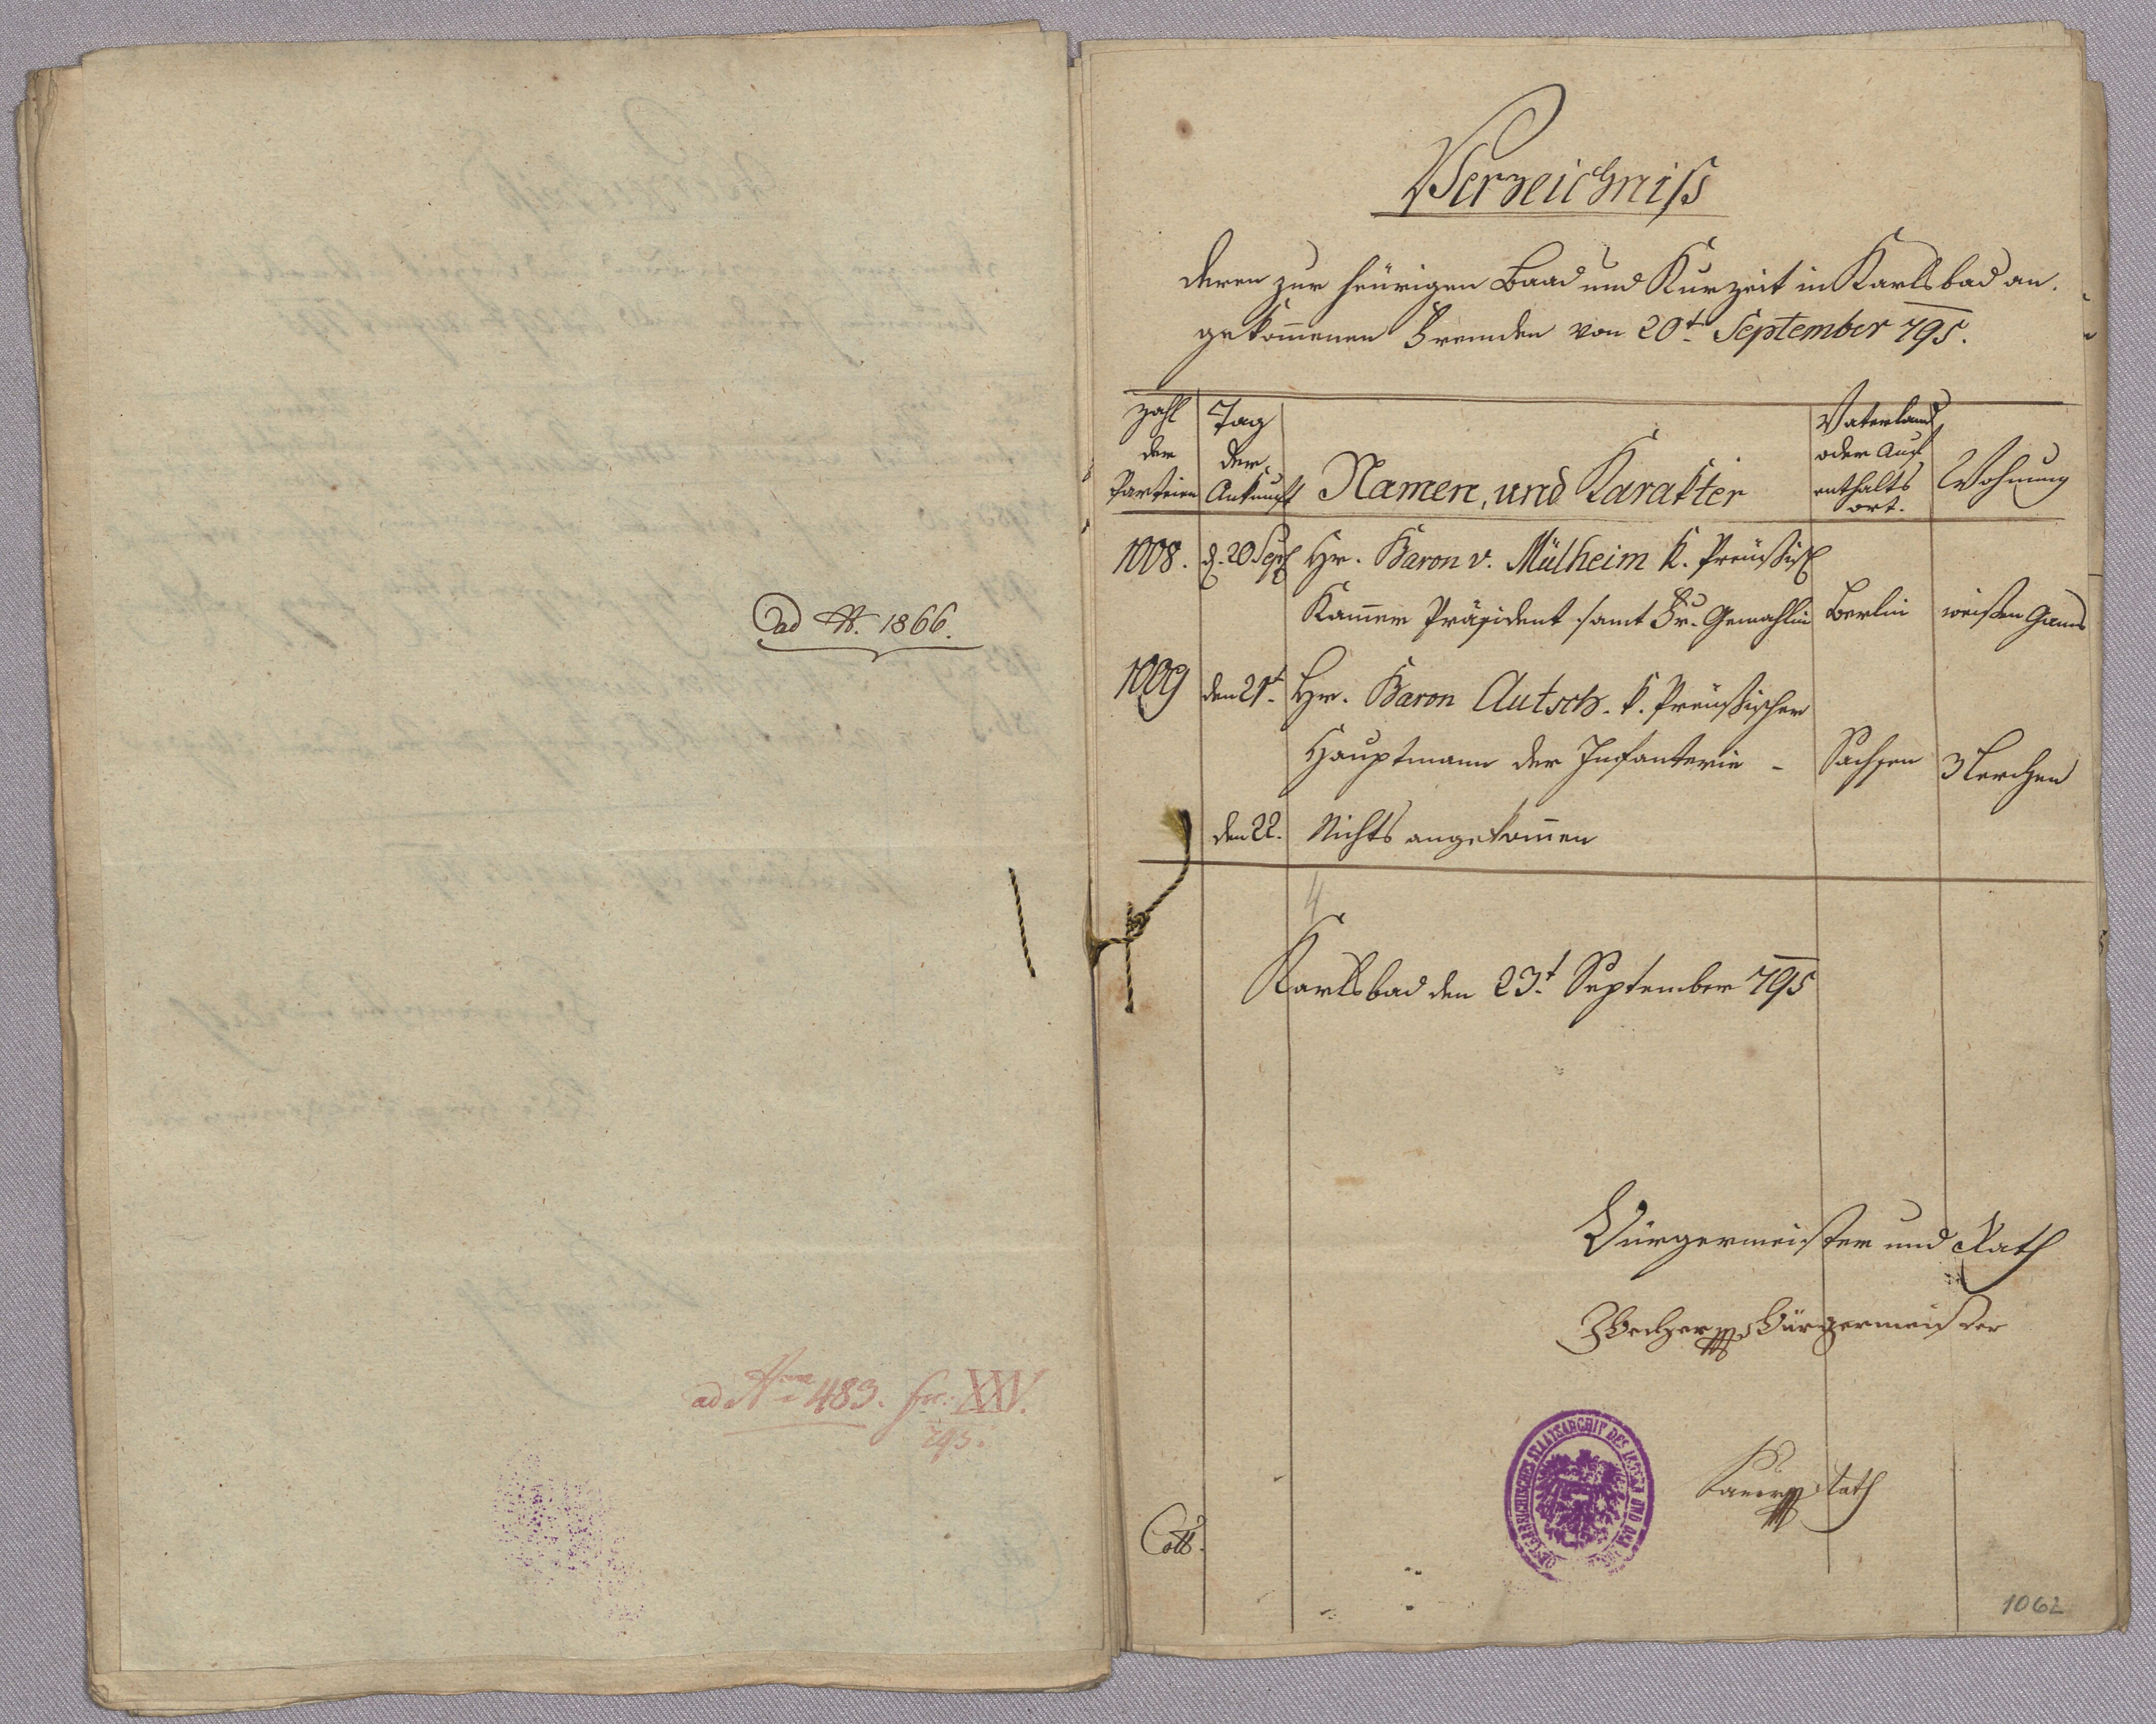 ad N. 1866.
ad Num 483. fir: XXV.
795.
Verzeichniß
deren zur heürigen Baad und Kurzeit in Karlsbad an.
gekom̄enen Fremden von 20t. September 795.
Zahl der Parteien
Tag der Ankunft
Namen, und Karakter
Vaterland oder Auf enthalts ort.
Wohnung
1008. d. 20 Sept Hr. Baron v. Mülheim k. Preüßisch
Kam̄er Präsident samt Fr. Gemahlin Berlin weißen Hauns
1009 den 21t. Hr. Baron Autsch. k. Preüßischer
Hauptmann der Infanterie - Sachsen 3 Lerchen
den 22. Nichts angekom̄en
4
Karlsbad den 23t. September 795
Bürgermeister und Rath
Becher Bürgermeister
Rath
Coll.
STAATSARCHIV DES INNERN UND DER
1062